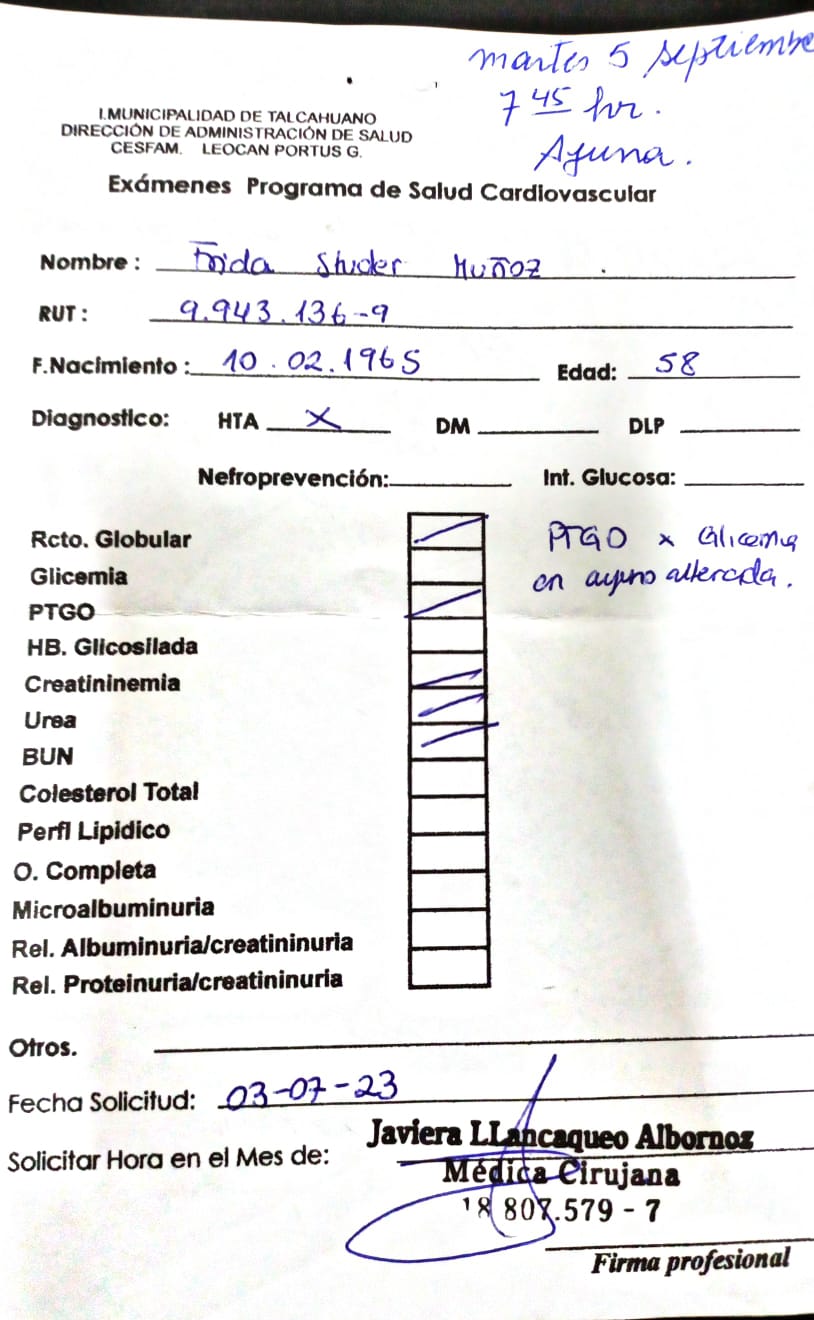 martes 5 septiembre
7 45 hr.
Ayuna.
I.MUNICIPALIDAD DE TALCAHUANO
DIRECCIÓN DE ADMINISTRACIÓN DE SALUD
CESFAM. LEOCAN PORTUS G.
Exámenes Programa de Salud Cardiovascular
Nombre : Frida Studer Muñoz
RUT : 9.943.136-9
F.Nacimiento : 10.02.1965 Edad: 58
Diagnostico: HTA X DM DLP
Nefroprevención: Int. Glucosa:
Rcto. Globular PTGO x Glicemia
Glicemia en ayuno alterada.
PTGO
HB. Glicosilada
Creatininemia
Urea
BUN
Colesterol Total
Perfil Lipidico
O. Completa
Microalbuminuria
Rel. Albuminuria/creatininuria
Rel. Proteinuria/creatininuria
Otros.
Fecha Solicitud: 03-07-23
Javiera LLancaqueo Albornoz
Solicitar Hora en el Mes de:
Médica Cirujana
18 807.579 - 7
Firma profesional